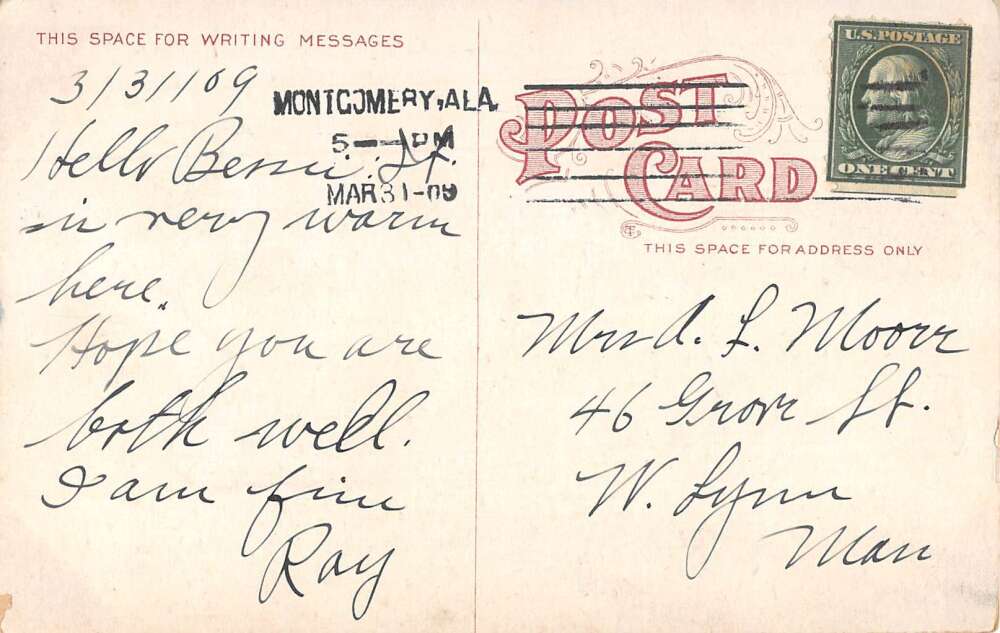 THIS SPACE FOR WRITING MESSAGES
3/31/09
MONTGOMERY, ALA.
5 - PM
MAR 31 - 09
Hello Bessie. It
is very warm
here.
Hope you are
both well.
I am fine
Ray
POST CARD
U.S. POSTAGE
ONE CENT
THIS SPACE FOR ADDRESS ONLY
Mrs A. L. Moore
46 Grove St.
W. Lynn
Mass